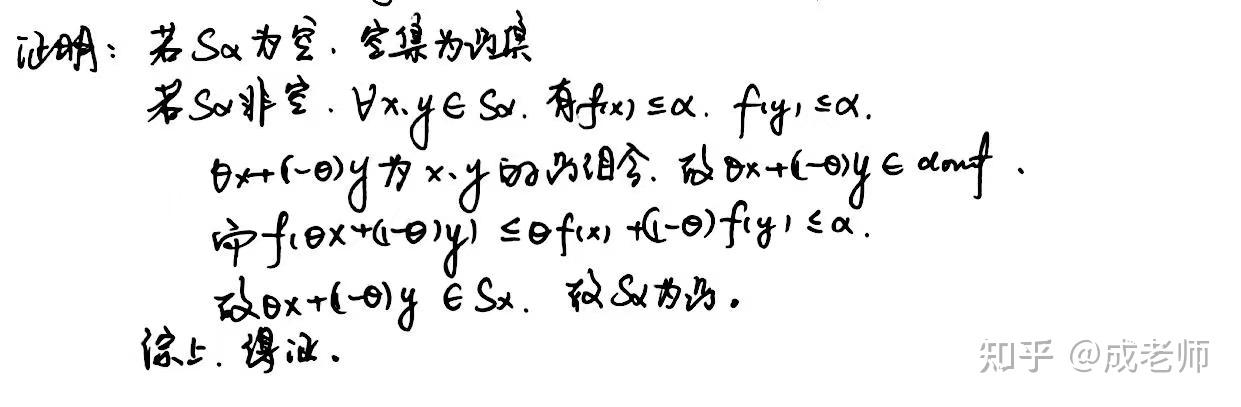 证明: 若 Sα 为空. 空集为凸集
若 Sα 非空. ∀x、y ∈ Sα. 有 f(x) ≤ α. f(y) ≤ α.
θx+(1-θ)y 为 x、y 的凸组合. 故 θx+(1-θ)y ∈ domf.
f(θx+(1-θ)y) ≤ θf(x)+(1-θ)f(y) ≤ α.
故 θx+(1-θ)y ∈ Sα. 故 Sα 为凸。
综上. 得证。
知乎 @成老师